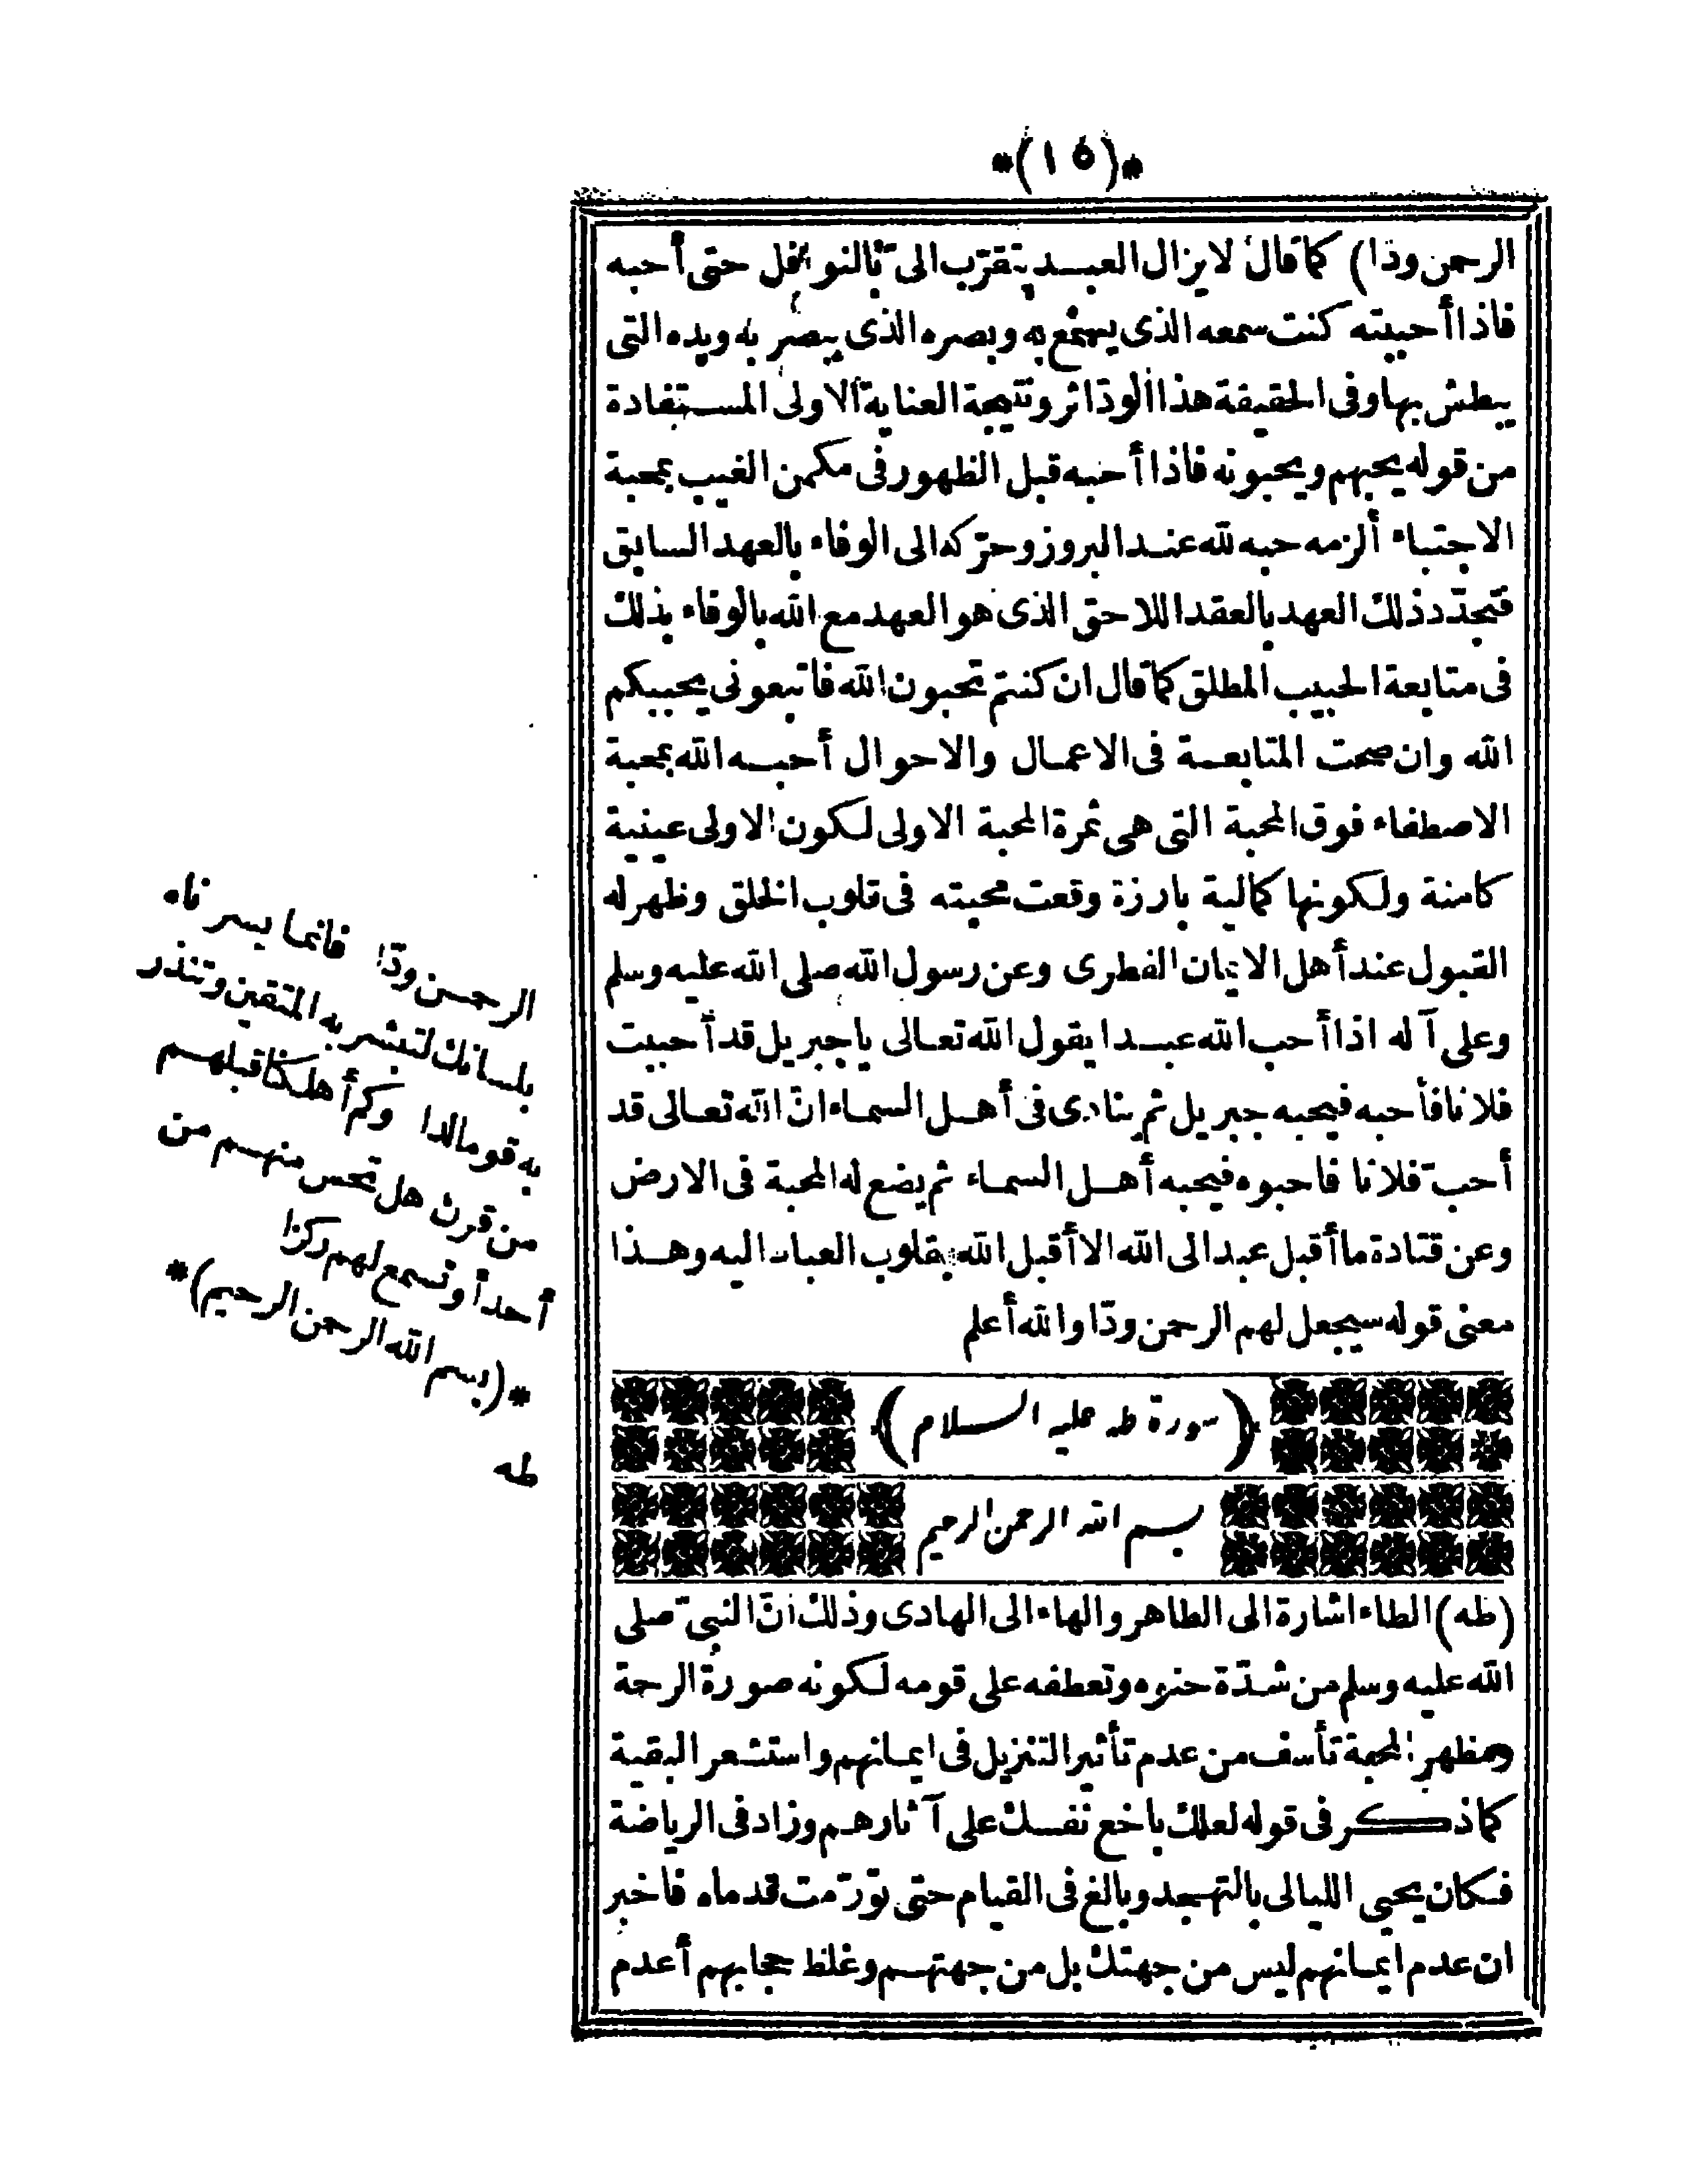 *(١٥)*
الرحمن ودّا) كما قال لا يزال العبد يتقرّب الىّ بالنوافل حتى أحبه
فاذا أحببته كنت سمعه الذى يسمع به وبصره الذى يبصر به ويده التى
يبطش بها وفى الحقيقة هذا الودّ اثر ونتيجة العناية الاولى المستفادة
من قوله يحبهم ويحبونه فاذا أحبه قبل الظهور فى مكمن الغيب بمحبة
الاجتباء ألزمه حبه لله عند البروز وحرّكه الى الوفاء بالعهد السابق
فتجدّد ذلك العهد بالعقد اللاحق الذى هو العهد مع الله بالوفاء بذلك
فى متابعة الحبيب المطلق كما قال ان كنتم تحبون الله فاتبعونى يحببكم
الله وان صحت المتابعة فى الاعمال والاحوال أحبه الله بمحبة
الاصطفاء فوق المحبة التى هى ثمرة المحبة الاولى لكون الاولى عينية
كامنة ولكونها كمالية بارزة وقعت محبته فى قلوب الخلق وظهر له
القبول عند أهل الايمان الفطرى وعن رسول الله صلى الله عليه وسلم
وعلى آله اذا أحب الله عبدا يقول الله تعالى يا جبريل قد أحببت
فلانا فأحبه فيحبه جبريل ثم ينادى فى أهل السماء انّ الله تعالى قد
أحبّ فلانا فاحبوه فيحبه أهل السماء ثم يضع له المحبة فى الارض
وعن قتادة ما أقبل عبد الى الله الا أقبل الله بقلوب العباد اليه وهذا
معنى قوله سيجعل لهم الرحمن ودّا والله أعلم
(سورة طه عليه السلام)
بسم الله الرحمن الرحيم
(طه) الطاء اشارة الى الطاهر والهاء الى الهادى وذلك انّ النبىّ صلى
الله عليه وسلم من شدّة حنوه وتعطفه على قومه لكونه صورة الرحمة
ومظهر المحبة تأسف من عدم تأثير التنزيل فى ايمانهم واستشعر البقية
كما ذكر فى قوله لعلك باخع نفسك على آثارهم وزاد فى الرياضة
فكان يحيى الليالى بالتهجد وبالغ فى القيام حتى تورّمت قدماه فاخبر
ان عدم ايمانهم ليس من جهتك بل من جهتهم وغلظ حجابهم أعدم
الرحمن ودّا فانما يسرناه
بلسانك لتبشر به المتقين وتنذر
به قوما لدا وكم أهلكنا قبلهم
من قرن هل تحس منهم من
أحد أو تسمع لهم ركزا
*(بسم الله الرحمن الرحيم)*
طه